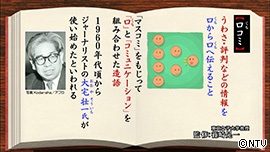 【口コミ】
うわさ・評判などの情報を
口から口へ伝えること
「マスコミ」をもじって
「口」と「コミュニケーション」を
組み合わせた造語
1960年代頃から
ジャーナリストの大宅壮一氏が
使い始めたといわれる
写真:Kodansha／アフロ
©NTV